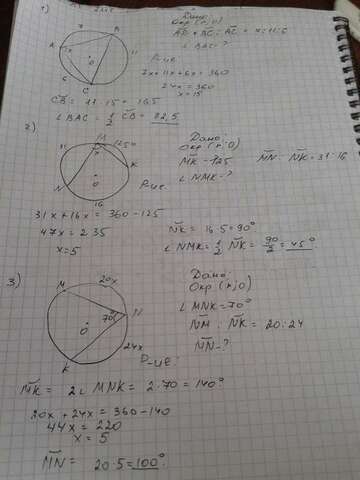 1)
7
B
A
x
O
11
6
C
Дано:
Окр (r; O)
AB : BC : AC = 7:11:6
∠ BAC - ?
Р-ие
7x + 11x + 6x = 360
24x = 360
x = 15
CB = 11 · 15 = 165
∠ BAC = 1/2 CB = 82,5
2)
M
125°
x
31
K
O
N
16
Дано:
Окр (r; O)
MK - 125 MN : NK = 31:16
∠ NMK - ?
Р-ие
31x + 16x = 360 - 125
47x = 235
x = 5
NK = 16·5 = 90°
∠ NMK = 1/2 NK = 90/2 = 45°
3)
20x
M
N
70°
O
24x
K
Дано:
Окр (r; O)
∠ MNK = 70°
NM : NK = 20:24
MN - ?
Р-ие:
MK = 2∠ MNK = 2·70 = 140°
20x + 24x = 360 - 140
44x = 220
x = 5
MN = 20·5 = 100°